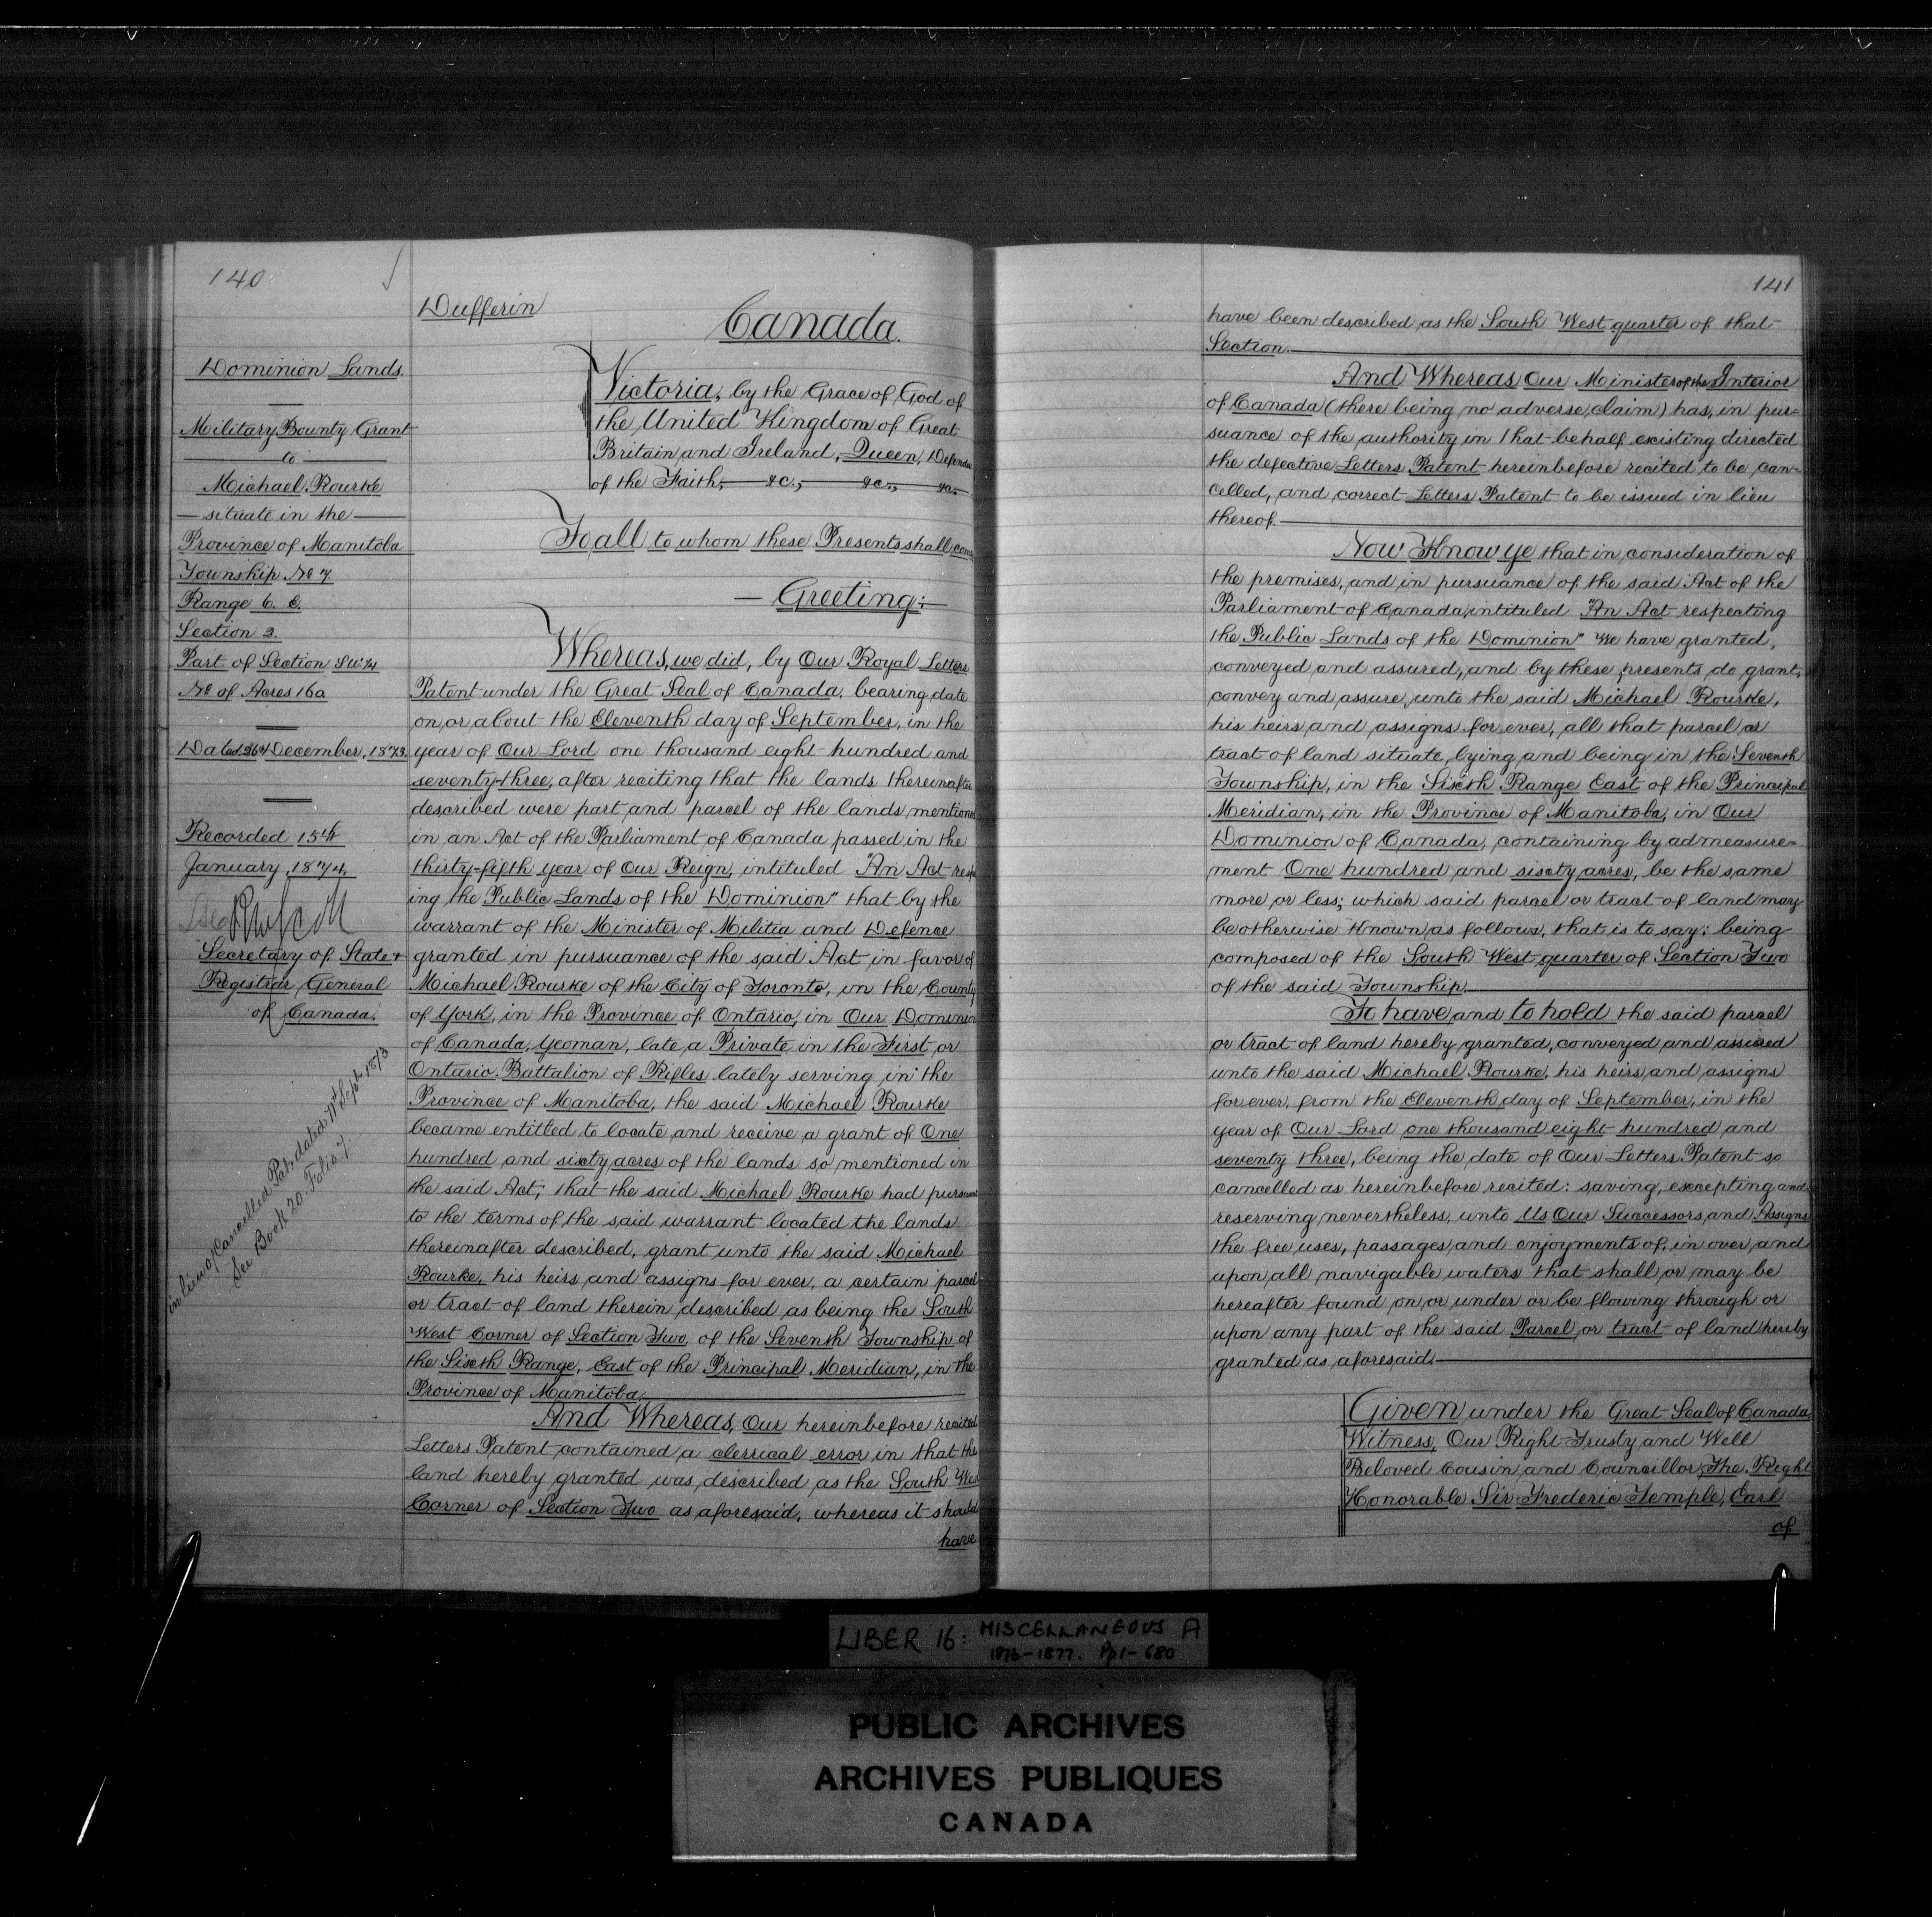 140
Dufferin
Canada.
Dominion Lands.
Military Bounty Grant
to
Michael Rourke
situate in the
Province of Manitoba
Township No 7
Range 6. E.
Section 2.
Part of Section S W ¼
No of Acres 160
Dated 26th December, 1873.
Recorded 15th
January, 1874.
Secretary of State &
Registrar General
of Canada.
in lieu of Cancelled Pat. dated 11th Sept 1873
See Book 20. Folio 7.
Victoria, by the Grace of God of
the United Kingdom of Great
Britain and Ireland, Queen, Defender
of the Faith, &c., &c., &c.
To all to whom these Presents shall come
Greeting:
Whereas, we did, by Our Royal Letters
Patent under the Great Seal of Canada, bearing date
on or about the Eleventh day of September, in the
year of Our Lord one thousand eight hundred and
seventy-three, after reciting that the lands thereinafter
described were part and parcel of the lands mentioned
in an Act of the Parliament of Canada passed in the
thirty-fifth year of Our Reign, intituled "An Act respect
ing the Public Lands of the Dominion" that by the
warrant of the Minister of Militia and Defence
granted in pursuance of the said Act in favor of
Michael Rourke of the City of Toronto, in the County
of York, in the Province of Ontario, in Our Dominion
of Canada, Yeoman, late a Private in the First or
Ontario Battalion of Rifles lately serving in the
Province of Manitoba, the said Michael Rourke
became entitled to locate and receive a grant of One
hundred and sixty acres of the lands so mentioned in
the said Act; that the said Michael Rourke had pursuant
to the terms of the said warrant located the lands
thereinafter described, grant unto the said Michael
Rourke, his heirs and assigns for ever, a certain parcel
or tract of land therein described as being the South
West Corner of Section Two of the Seventh Township of
the Sixth Range, East of the Principal Meridian, in the
Province of Manitoba.
And Whereas, Our hereinbefore recited
Letters Patent contained a clerical error in that the
land hereby granted was described as the South West
Corner of Section Two as aforesaid, whereas it should
have
141
have been described as the South West quarter of that
Section.
And Whereas Our Minister of the Interior
of Canada (there being no adverse claim) has, in pur-
suance of the authority in that behalf existing directed
the defective Letters Patent hereinbefore recited to be can-
celled, and correct Letters Patent to be issued in lieu
thereof.
Now Know ye that in consideration of
the premises, and in pursuance of the said Act of the
Parliament of Canada, intituled "An Act respecting
the Public Lands of the Dominion" We have granted,
conveyed and assured, and by these presents do grant,
convey and assure, unto the said Michael Rourke,
his heirs and assigns for ever, all that parcel or
tract of land situate, lying and being in the Seventh
Township, in the Sixth Range East of the Principal
Meridian, in the Province of Manitoba, in Our
Dominion of Canada, containing by admeasure-
ment One hundred and sixty acres, be the same
more or less; which said parcel or tract of land may
be otherwise known as follows, that is to say: being
composed of the South West quarter of Section Two
of the said Township.
To have and to hold the said parcel
or tract of land hereby granted, conveyed and assured
unto the said Michael Rourke, his heirs and assigns
for ever, from the Eleventh day of September, in the
year of Our Lord one thousand eight hundred and
seventy three, being the date of Our Letters Patent so
cancelled as hereinbefore recited: saving, excepting and
reserving nevertheless, unto Us Our Successors and Assigns
the free uses, passages and enjoyments of, in over and
upon all navigable waters that shall or may be
hereafter found on or under or be flowing through or
upon any part of the said Parcel or tract of land hereby
granted as aforesaid.
Given under the Great Seal of Canada
Witness, Our Right Trusty and Well
Beloved Cousin and Councillor The Right
Honorable Sir Frederic Temple, Earl
of
LIBER 16: MISCELLANEOUS A
1873-1877. Pp 1-680
PUBLIC ARCHIVES
ARCHIVES PUBLIQUES
CANADA